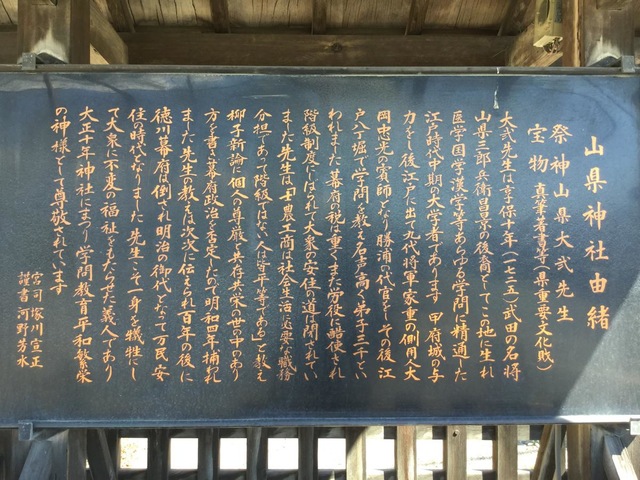 山県神社由緒
祭神山県大弐先生
宝物 真筆著書等(県重要文化財)
大弐先生は享保十年(一七二五)武田の名将
山県三郎兵衛昌景の後裔としてこの地に生れ
医学国学漢学等あらゆる学問に精通した
江戸時代中期の大学者であります 甲府城の与
力をし後江戸に出て九代将軍家重の側用人大
岡忠光の賓師となり勝浦の代官をしその後江
戸八丁堀で学問を教え名声高く弟子三千とい
われました幕府の税は重くまた労役に酷使され
階級制度にしばられて大衆の安住の道は閉されてい
ました先生は「士農工商は社会生活に必要な職務
分担であって階級はない人は皆平等である」と教え
柳子新論に個人の尊厳と共存共栄の世の中のあり
方を書き幕府政治を否定したので明和四年捕われ
ました先生の教えは次次に伝えられ百年の後に
徳川幕府は倒され明治の御代となって万民安
住の時代となりました 先生こそ一身を犠牲にし
て大衆に不変の福祉をもたらせた義人であり
大正十年神社にまつり学問教育平和繁栄
の神様として尊敬されています
宮司 塚川宣正
謹書 河野芳水